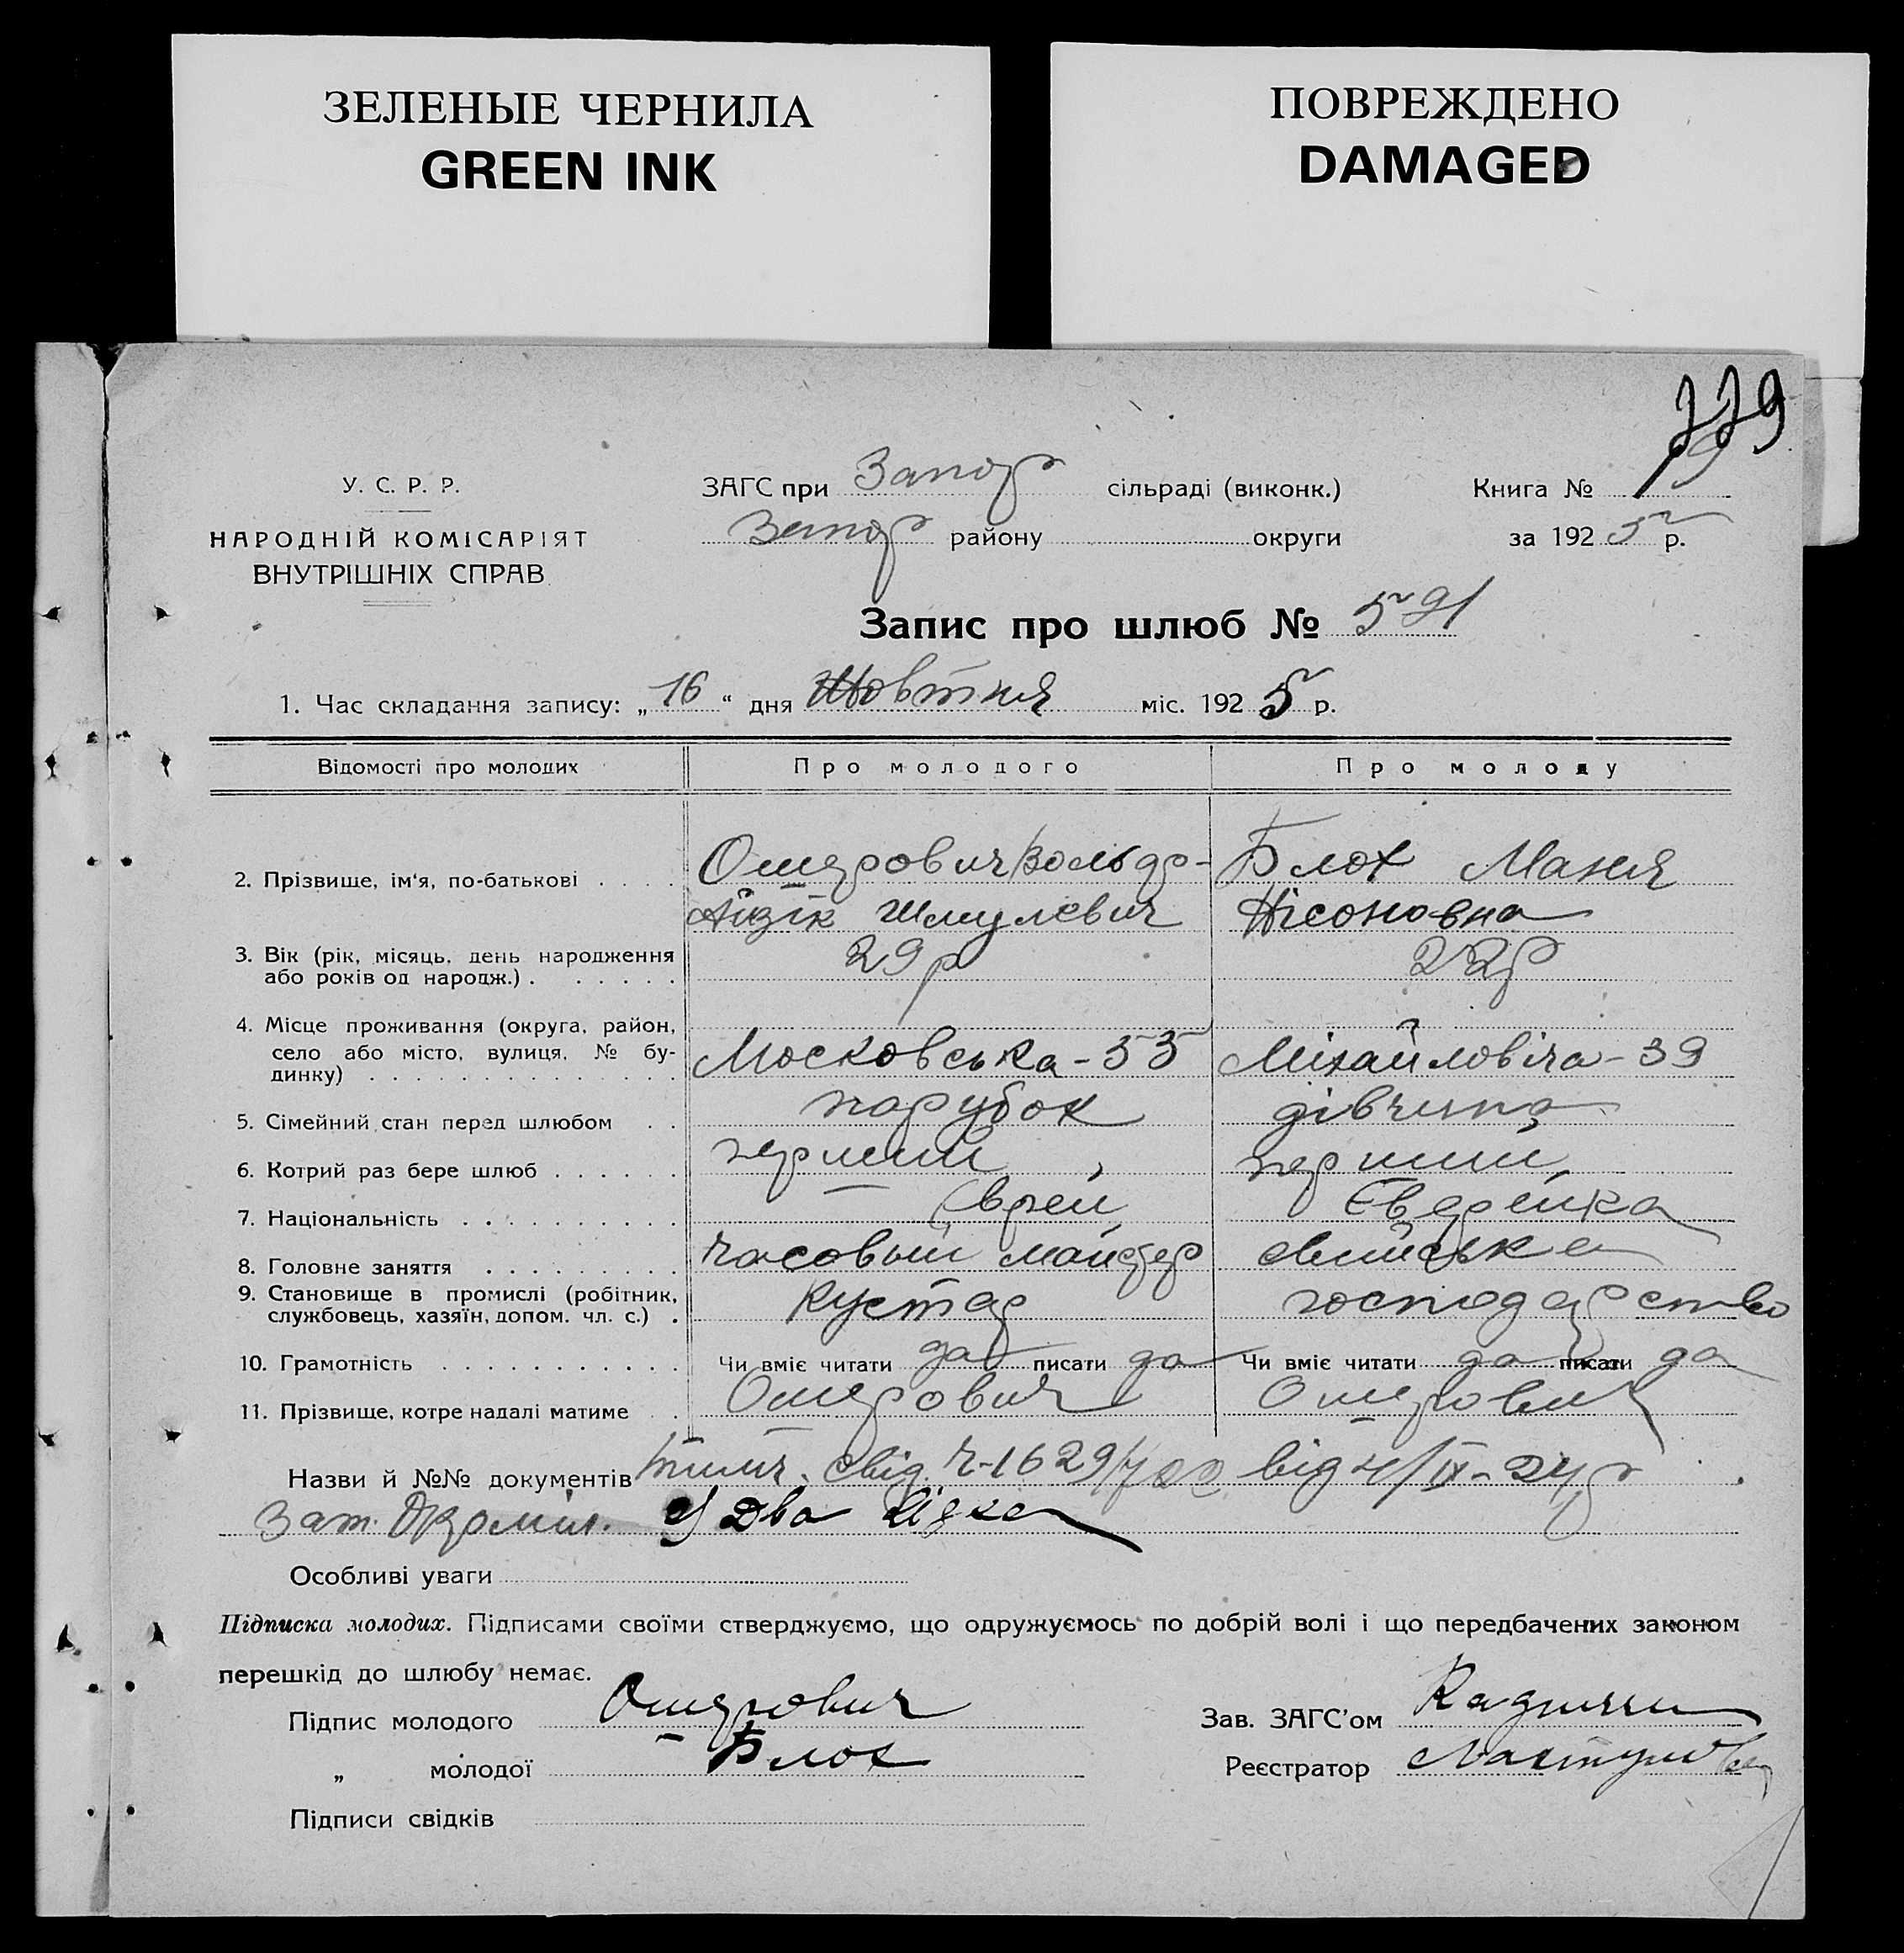 ЗЕЛЕНЫЕ ЧЕРНИЛА
GREEN INK
ПОВРЕЖДЕНО
DAMAGED
У. С. Р. Р.
НАРОДНІЙ КОМІСАРІЯТ
ВНУТРІШНІХ СПРАВ
ЗАГС при Запор сільраді (виконк.)
Запор району округи
Книга №
за 1925 р.
Запис про шлюб № 591
1. Час складання запису: „16“ дня Жовтня міс. 1925 р.
Відомості про молодих Про молодого Про молоду
2. Прізвище, ім'я, по-батькові Ошерович Вольф- Блох Маня
Айзік Шмулевич Нісоновна
3. Вік (рік, місяць, день народження 29 р 22 р
або років од народж.)
4. Місце проживання (округа, район,
село або місто, вулиця, № бу- Московська - 35 Міхайловіча - 39
динку)
5. Сімейний стан перед шлюбом парубок дівчина
6. Котрий раз бере шлюб перший перший
7. Національність Єврей Єврейка
8. Головне заняття часовый майстер
9. Становище в промислі (робітник, Кустар господарство
службовець, хазяїн, допом. чл. с.)
10. Грамотність Чи вміє читати да писати да Чи вміє читати да писати да
11. Прізвище, котре надалі матиме Ошерович Ошерович
Назви й №№ документів свід. Ч-1629/ від 4/IX-24 р
Два
Особливі уваги
Підписка молодих. Підписами своїми стверджуємо, що одружуємось по добрій волі і що передбачених законом
перешкід до шлюбу немає.
Підпис молодого Ошерович
„ молодої Блох
Підписи свідків
Зав. ЗАГС'ом
Реєстратор